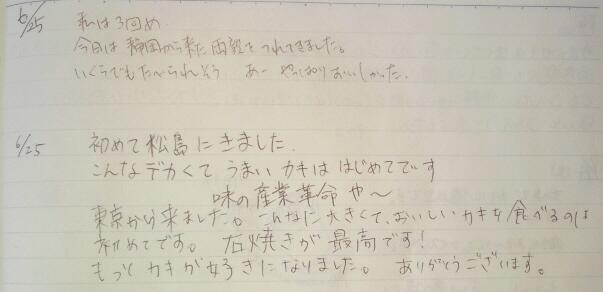 6/25 私は3回め
今日は静岡から来た両親をつれてきました。
いくらでもたべられそう あー やっぱりおいしかった.
6/25 初めて松島にきました.
こんなデカくてうまいカキははじめてです
味の産業革命や〜
東京から来ました。こんなに大きくて、おいしいカキを食べるのは
初めてです。石焼きが最高です!
もっとカキが好きになりました。ありがとうございます。